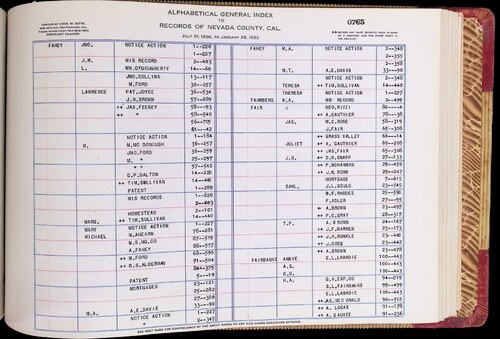 ALPHABETICAL GENERAL INDEX
TO
RECORDS OF NEVADA COUNTY, CAL.
0765
FAHEY JNO. NOTICE ACTION 1-220
1-227
J.W. MIS RECORD 2-403
L. WM.O'DOUGHERTY 14-60
JNO.COLLINS 13-117
M.FORD 30-257
LAWRENCE PAT.JOYCE 38-534
J.W.BROWN 57-609
++ JAS.FEENEY 58-537
++ " 58-540
56-705
61-42
NOTICE ACTION 1-184
M. MC DONOUGH 36-257
JNO.FORD 36-259
M. " 25-297
57-542
G.P.DALTON 14-220
++ TIM.SULLIVAN 14-440
PATENT 1-289
MIS RECORDS 1-620
2-403
HOMESTEAD 2-101
MARG. ++ TIM.SULLIVAN 14-440
MARY NOTICE ACTION 1-227
MICHAEL M.AHEARN 78-281
M.S.MG.CO 87-578
A.FAHEY 88-577
++ M.FORD 68-596
++ R.S.ALDERMAN 91-504
84-375
5-19
PATENT 23-121
MORTGAGES 25-282
27-326
33-90
M.A. A.E.DAVIS 1-227
NOTICE ACTION 2-345
"
FAHEY M.A. NOTICE ACTION 2-348
2-355
2-358
M.T. A.E.DAVIS 33-90
NOTICE ACTION 2-348
TERESA ++ TIM.SULLIVAN 14-440
THERESA NOTICE ACTION 1-227
FAIRBERG M.A. MIS RECORD 2-499
FAIR J GEO.RIZZI 80-4
++ A.GAUTHIER 78-38
JAS. M.C.ROSE 58-319
J.FAIR 65-308
++ GRASS VALLEY 66-14
JULIET ++ A. GAUTHIER 69-208
++ JAS.FAIR 65-308
J.G. ++ D.H.SNAPP 27-133
++ P.BOHANNA 29-456
++ J.N.ROBB 29-247
MORTGAGE 7-615
SAML. J.L.GOULD 23-545
B.F.RHODES 25-590
F.ADLER 27-95
++ A.BROWN 23-497
++ P.C.GRAY 28-317
T.P. A.BROWN 24-167
++ J.F.WARREN 23-173
++ J.H.RUNKLE 23-440
++ J.CODE 23-442
++ A.BROWN 23-478
FAIRBANKS ANNIE E.L.LABADIE 100-443
A.S. 100-443
G.G. 100-443
H.A. S.V.EXP.CO 94-219
S.L.FAIRBANKS 99-499
E.L.LABADIE 100-443
++ JAS.MCDONALD 90-512
++ A. LUCAS 91-178
++ A SAUVEE 91-236